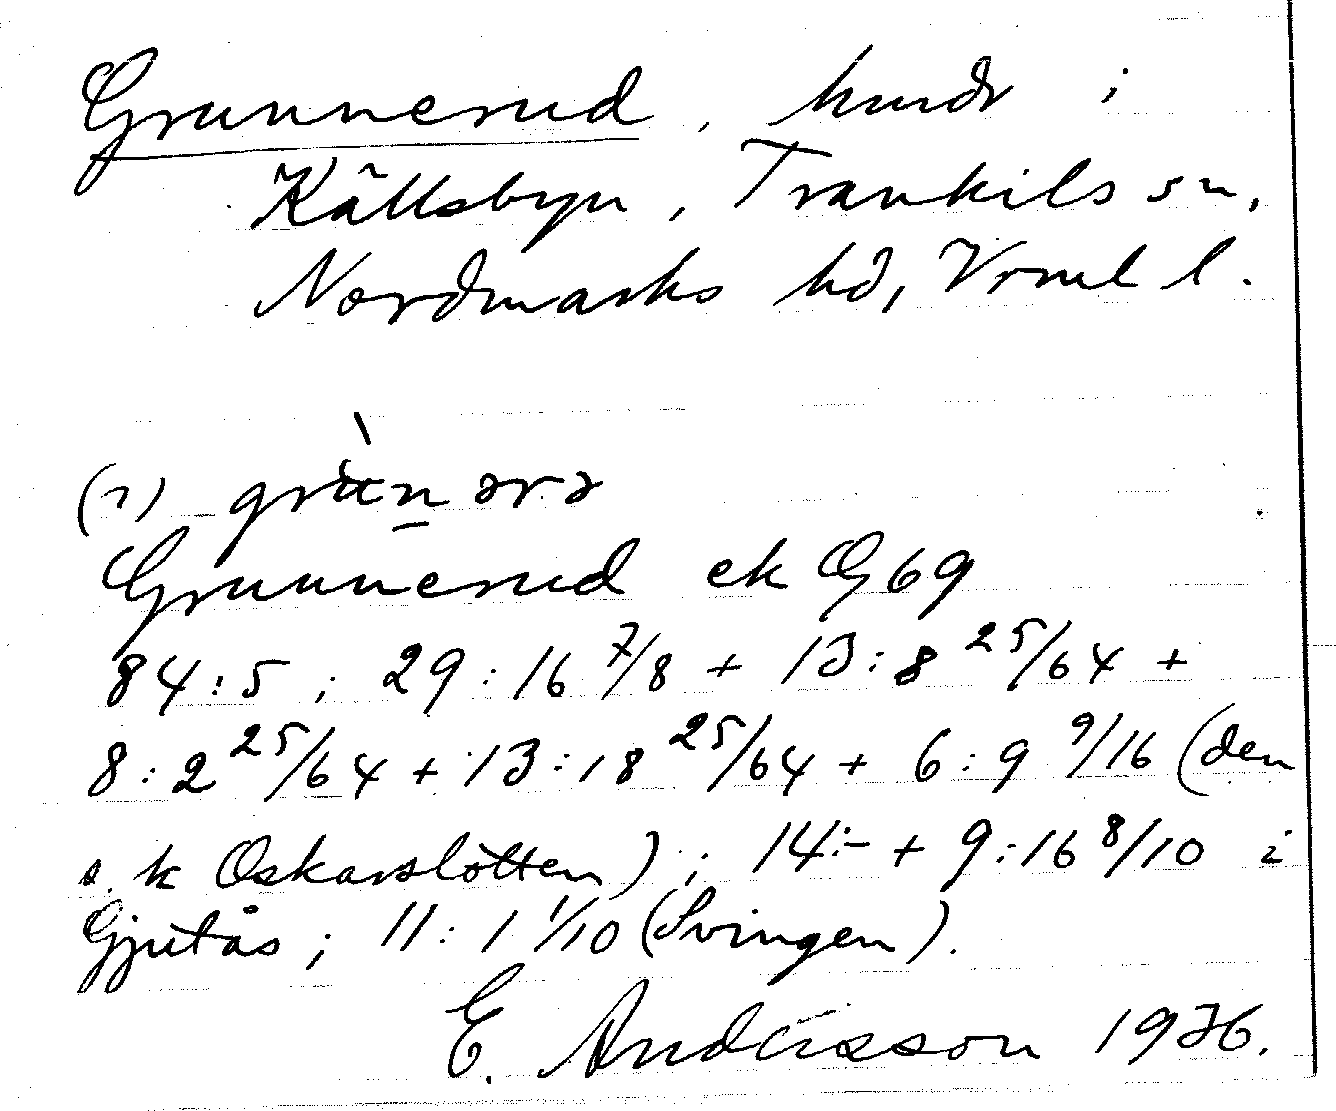 Grunnerud, hmdr i
Källsbyn, Trankils sn,
Nordmarks hd, Vrml l.
(1)
Grunnerud ek G69
84:5; 29:16 7/8 + 13:8 25/64 +
8:2 25/64 + 13:18 25/64 + 6:9 9/16 (den
s.k Oskarslötten); 14:- + 9:16 8/10 i
Gjutås; 11:1 1/10 (Svingen).
E. Andersson 1936.